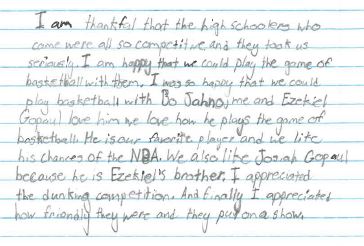 I am thankful that the high schoolers who
came were all so competitive and they took us
seriously. I am happy that we could play the game of
basketball with them. I was so happy that we could
play basketball with Bo Jahno, me and Ezekiel
Gopaul love him we love how he plays the game of
basketball. He is our favorite player and we like
his chances of the NBA. We also like Josiah Gopaul
because he is Ezekiel's brother. I appreciated
the dunking competition. And finally I appreciated
how friendly they were and they put on a show.